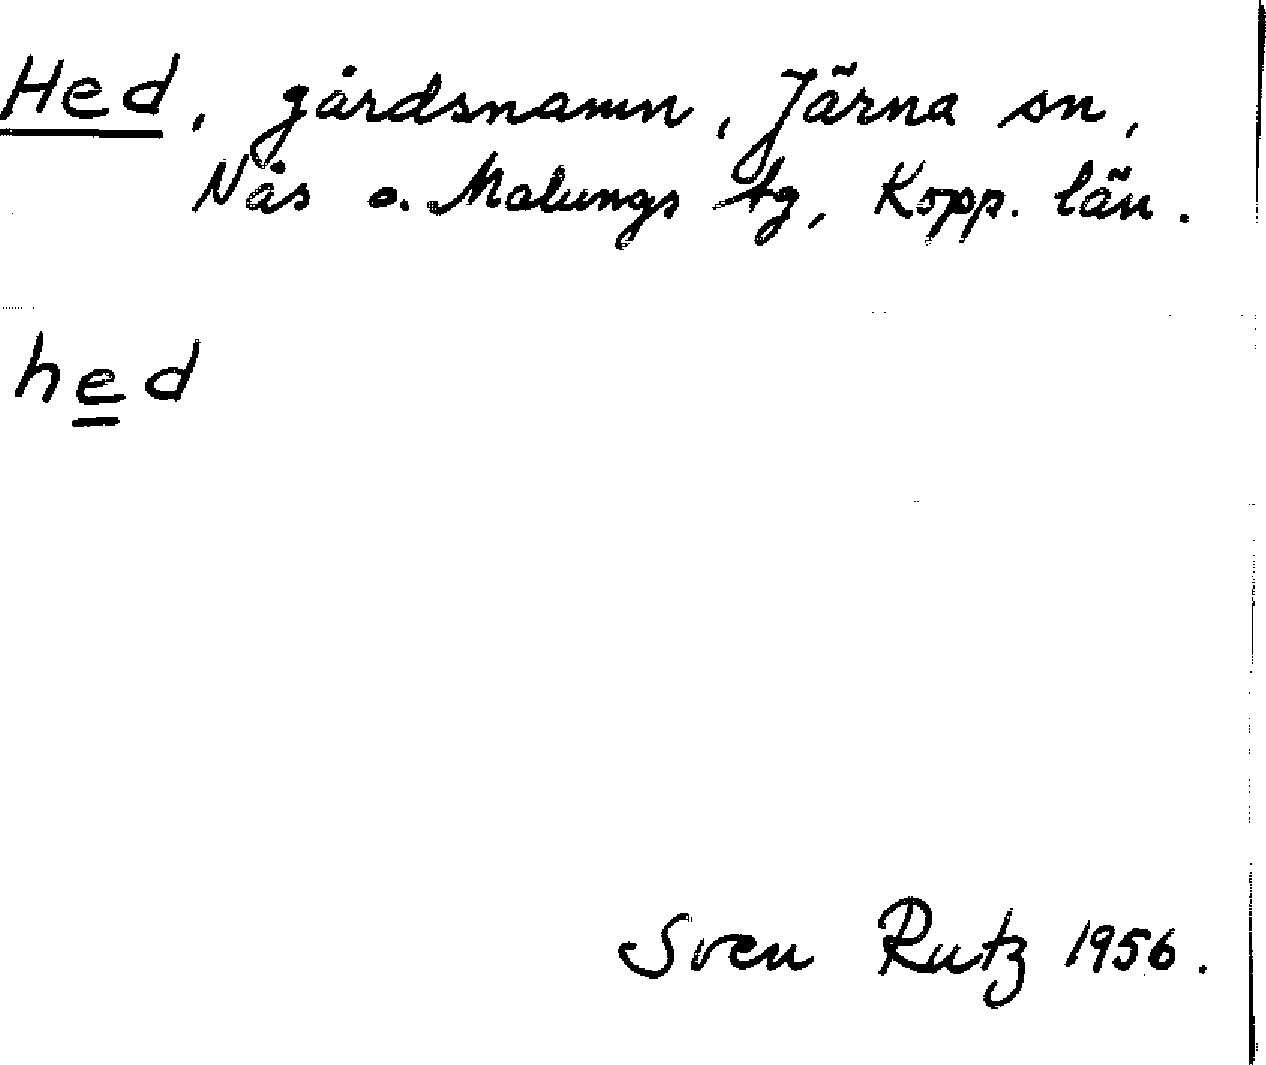 Hed, gårdsnamn, Järna sn,
Nås o. Malungs tg, Kopp. län.
hed
Sven Rutz 1956.